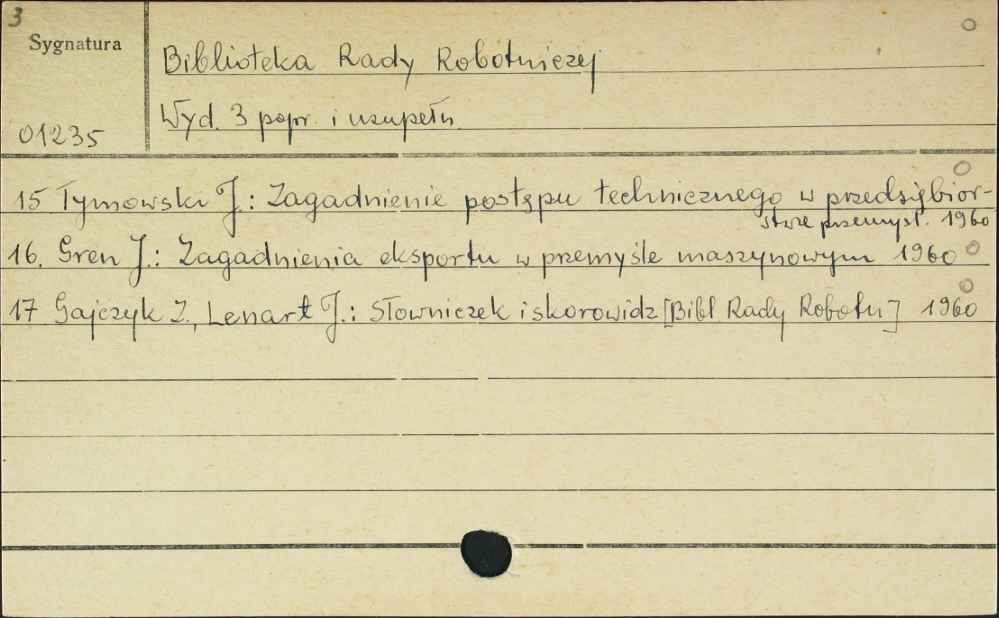 3
Sygnatura
Biblioteka Rady Robotniczej
Wyd. 3 popr. i uzupełn.
01235
15 Tymowski J.: Zagadnienie postępu technicznego w przedsiębior-
stwie przemysł. 1960
16. Gren J.: Zagadnienia eksportu w przemyśle maszynowym 1960
17 Gajczyk Z., Lenart J.: Słowniczek i skorowidz [Bibl Rady Robotn] 1960